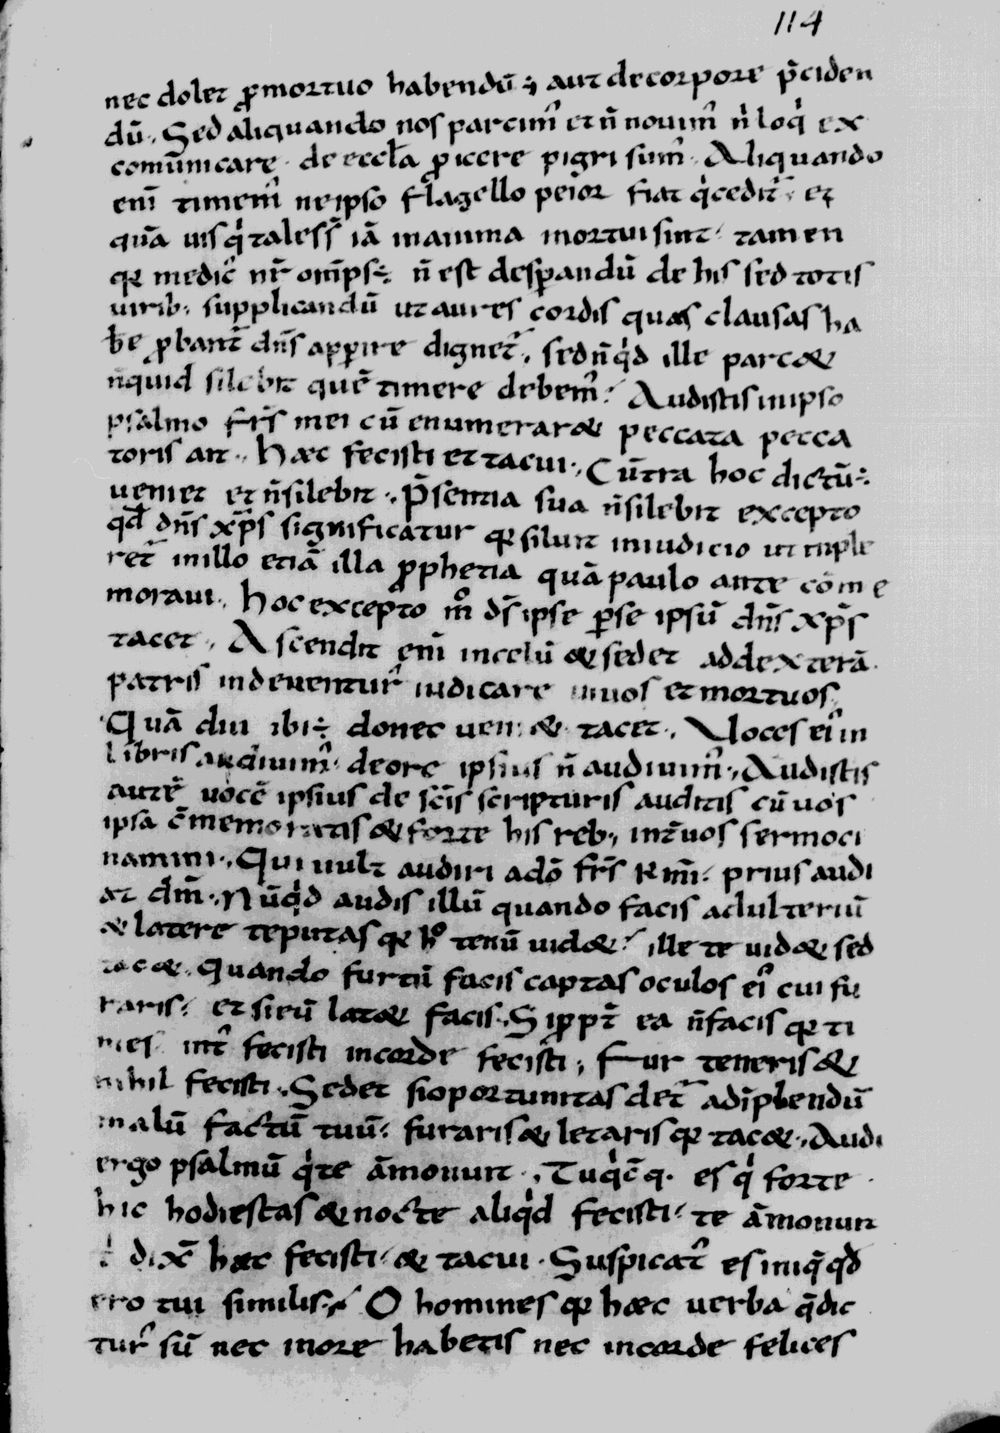 114
nec dolet ꝓmortuo habendū; aut decorpore p̄ciden
dū. Sed aliquando nos parcim᷒ et n̄ novim᷒ n̄ loq̇ ex
comūnicare. de eccl̄a ꝓicere pigri sum᷒. Aliquando
eni̅ timem᷒ ne ipso flagello peior fiat q̇ cedit᷒. et
quā uis q̇ taless̄ iā inanima mortui sint. tamen
qr medic᷒ nr̄ om̄ps ÷. n̄ est desꝑandū de his sed totis
uirib; supplicandū ut aures cordis quas clausas ha
b̄e ꝓbant᷒ dn̄s apꝑire dignet᷒. sed n̄q̇d ille parc&
n̄quid silebit quē timere debem᷒. Audistis inipso
psalmo fr̄s mei cū enumerar& peccata pecca
toris ait. Haec fecisti et tacui. Cūtra hoc dictū ÷.
ueniet et n̄silebit. P̄sentia sua n̄silebit excepto
qd̄ dn̄s xp̄s significatur qr siluit iniudicio ut inple
ret᷒ inillo etiā illa ꝓphetia quā paulo ante cōme
moraui. Hoc excepto m̊ ds̄ ipse ꝑse ipsū dn̄s xp̄s
tacet. Ascendit eni̅ incelū & sedet addexterā
patris inde uentur᷒ iudicare uiuos et mortuos
Quā diu ibi ÷ donec ueni& tacet. Uoces ei᷒ in
libris audiuim᷒. deore ipsius n̄ audiuim᷒. Audistis
autē uocē ipsius de sc̄is scripturis auditis cū uos
ipsa c̄memoratis & forte his reb; int̄ uos sermoci
namini. Qui uult audiri adō fr̄s km̄i. prius audi
at dm̄. Nūq̇d audis illū quando facis adulteriū
& latere teputas qr h̊ tenū uid&. ille te uid& sed
tac&. Quando furtū facis captas oculos ei᷒ cui fu
raris. et si eū lat& facis. Si ꝓpt̄ ea n̄facis qr ti
mes int᷒ fecisti incorde fecisti; Fur teneris &
nihil fecisti. Sed et si oportunitas det᷒ adīplendū
malū factū tuū. furaris & letaris qr tac&. Audi
ergo psalmū q̇ te āmonuit. Tu q̇cq̄. es q̇ forte
hic hodie stas & nocte aliq̇d fecisti te āmonuit
q̇ dix̄ haec fecisti & tacui. Suspicat᷒ es iniq̄ qd̄
ero tui similis. O homines qr haec uerba q̄dic
tur᷒ sū nec inore habetis nec incorde felices